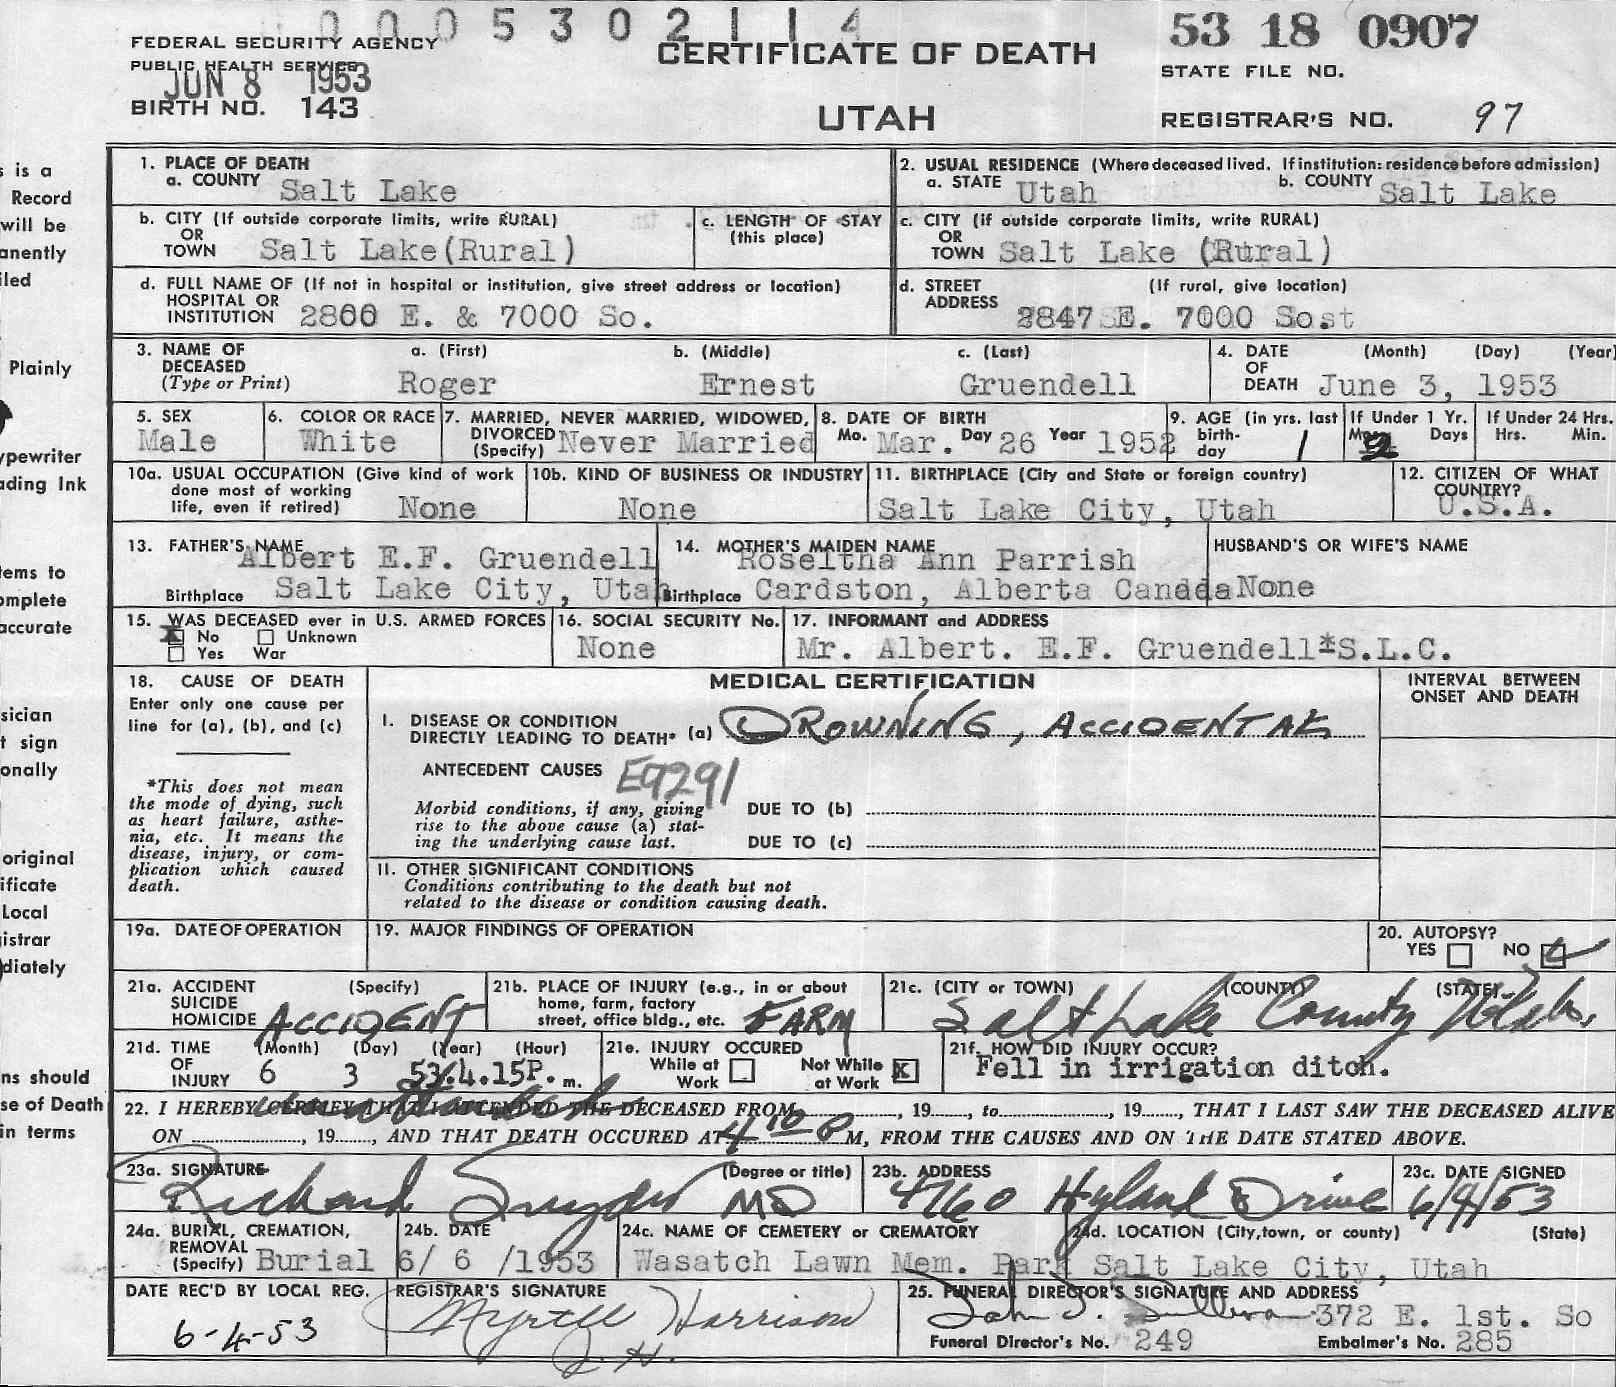 0005302114
53 18 0907
FEDERAL SECURITY AGENCY
PUBLIC HEALTH SERVICE
JUN 8 1953
CERTIFICATE OF DEATH
STATE FILE NO.
BIRTH NO. 143
UTAH
REGISTRAR'S NO. 97
s is a
Record
will be
anently
iled
Plainly
ypewriter
ading Ink
tems to
omplete
accurate
sician
t sign
onally
original
ificate
Local
istrar
diately
ns should
se of Death
in terms
1. PLACE OF DEATH
a. COUNTY Salt Lake
2. USUAL RESIDENCE (Where deceased lived. If institution: residence before admission)
a. STATE Utah b. COUNTY Salt Lake
b. CITY (If outside corporate limits, write RURAL)
OR
TOWN Salt Lake(Rural)
c. LENGTH OF STAY
(this place)
c. CITY (if outside corporate limits, write RURAL)
OR
TOWN Salt Lake (Rural)
d. FULL NAME OF (If not in hospital or institution, give street address or location)
HOSPITAL OR
INSTITUTION 2800 E. & 7000 So.
d. STREET (If rural, give location)
ADDRESS 2847 E. 7000 So.
3. NAME OF
DECEASED
(Type or Print)
a. (First) b. (Middle) c. (Last)
Roger Ernest Gruendell
4. DATE (Month) (Day) (Year)
OF
DEATH June 3, 1953
5. SEX
Male
6. COLOR OR RACE
White
7. MARRIED, NEVER MARRIED, WIDOWED,
DIVORCED
(Specify) Never Married
8. DATE OF BIRTH
Mo. Mar. Day 26 Year 1952
9. AGE (in yrs. last
birth-
day 1
If Under 1 Yr.
Mos. 2 Days
If Under 24 Hrs.
Hrs. Min.
10a. USUAL OCCUPATION (Give kind of work
done most of working
life, even if retired) None
10b. KIND OF BUSINESS OR INDUSTRY
None
11. BIRTHPLACE (City and State or foreign country)
Salt Lake City, Utah
12. CITIZEN OF WHAT
COUNTRY?
U.S.A.
13. FATHER'S NAME
Albert E.F. Gruendell
Birthplace Salt Lake City, Utah
14. MOTHER'S MAIDEN NAME
Roseltha Ann Parrish
Birthplace Cardston, Alberta Canada
HUSBAND'S OR WIFE'S NAME
None
15. WAS DECEASED ever in U.S. ARMED FORCES
X No Unknown
Yes War
16. SOCIAL SECURITY No.
None
17. INFORMANT and ADDRESS
Mr. Albert. E.F. Gruendell*S.L.C.
18. CAUSE OF DEATH
Enter only one cause per
line for (a), (b), and (c)
*This does not mean
the mode of dying, such
as heart failure, asthe-
nia, etc. It means the
disease, injury, or com-
plication which caused
death.
MEDICAL CERTIFICATION
I. DISEASE OR CONDITION
DIRECTLY LEADING TO DEATH* (a) DROWNING, ACCIDENTAL
ANTECEDENT CAUSES E9291
Morbid conditions, if any, giving
rise to the above cause (a) stat-
ing the underlying cause last.
DUE TO (b)
DUE TO (c)
II. OTHER SIGNIFICANT CONDITIONS
Conditions contributing to the death but not
related to the disease or condition causing death.
INTERVAL BETWEEN
ONSET AND DEATH
19a. DATE OF OPERATION
19. MAJOR FINDINGS OF OPERATION
20. AUTOPSY?
YES NO
21a. ACCIDENT (Specify)
SUICIDE
HOMICIDE ACCIDENT
21b. PLACE OF INJURY (e.g., in or about
home, farm, factory
street, office bldg., etc. FARM
21c. (CITY or TOWN) (COUNTY) (STATE)
Salt Lake County Utah.
21d. TIME (Month) (Day) (Year) (Hour)
OF
INJURY 6 3 53. 4.15P. m.
21e. INJURY OCCURED
While at Not While
Work at Work X
21f. HOW DID INJURY OCCUR?
Fell in irrigation ditch.
22. I HEREBY CERTIFY THAT I ATTENDED THE DECEASED FROM, 19, to, 19, THAT I LAST SAW THE DECEASED ALIVE
ON, 19, AND THAT DEATH OCCURED AT 4 10 P M, FROM THE CAUSES AND ON THE DATE STATED ABOVE.
23a. SIGNATURE (Degree or title)
Richard Snyder MD
23b. ADDRESS
4760 Hyland Drive
23c. DATE SIGNED
6/4/53
24a. BURIAL, CREMATION,
REMOVAL
(Specify) Burial
24b. DATE
6/ 6 /1953
24c. NAME OF CEMETERY or CREMATORY
Wasatch Lawn Mem. Park
24d. LOCATION (City, town, or county) (State)
Salt Lake City, Utah
DATE REC'D BY LOCAL REG.
6-4-53
REGISTRAR'S SIGNATURE
Myrtle Harrison
J. H.
25. FUNERAL DIRECTOR'S SIGNATURE AND ADDRESS
372 E. 1st. So
Funeral Director's No. 249 Embalmer's No. 285